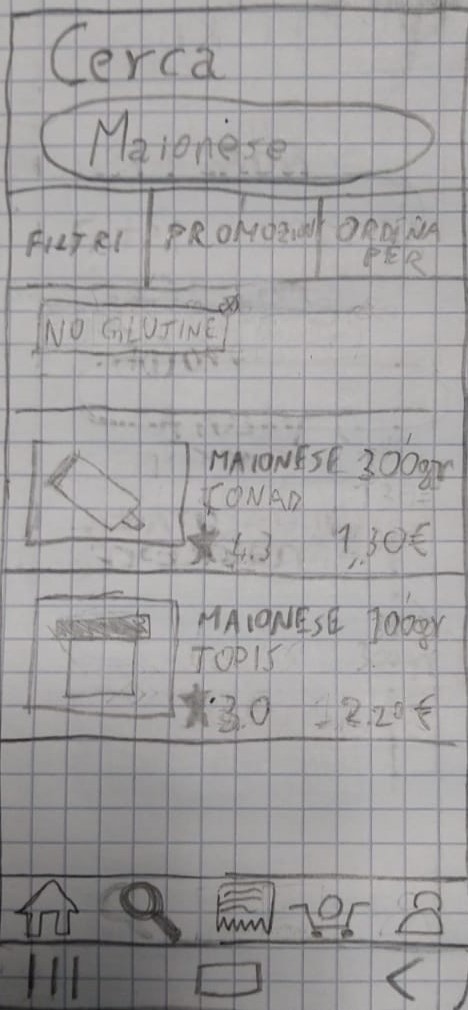 Cerca
Maionese
FILTRI
PROMOZIONI
ORDINA
PER
NO GLUTINE
MAIONESE 300gr
CONAD
4.3 1,30€
MAIONESE 100gr
TOPIS
3.0 2.20€